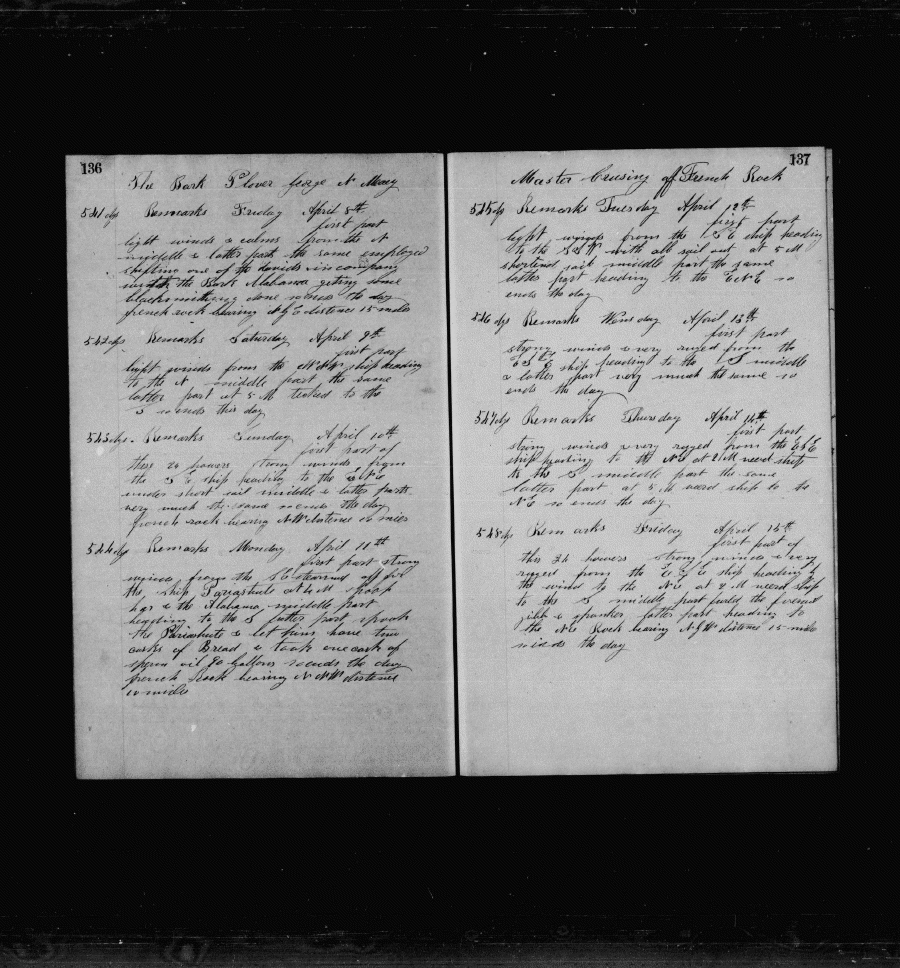 136
The Bark Plover George N Macy
541 dys Remarks Friday April 8th
first part
light winds & calms from the N
middle & latter part the same employed
shifting one of the davids in company
with the Bark Alabama geting some
blacksmithing done so ends the day
french rock bearing N distance 15 miles
542 dys Remarks Saturday April 9th
first part
light winds from the NNW ship heading
to the N middle part the same
latter part at 5 M tacked to the
S so ends this day
543 dys Remarks Sunday April 10th
first part of
these 24 howers strong winds from
the S E ship heading to the ENE
under short sail middle & latter parts
very much the same so ends the day
french rock bearing NW distence 10 miles
544 dys Remarks Monday April 11th
first part strong
winds from the SE stearing off for
the ship at 4 M spook
her & the Alabama middle part
heading to the S latter part spook
the & let him have two
casks of Bread & took one cask of
sperm oil 90 gallons so ends the day
french Rock bearing N NW distance
10 miles
137
Master Cruising off French Rock
545 dys Remarks Tuesday April 12th
first part
light winds from the S E ship heading
to the S W with all sail out at 5 M
shortened sail middle part the same
latter part heading to the ENE so
ends the day
546 dys Remarks Wensday April 13th
first part
strong winds & very ruged from the
E S E ship heading to the S middle
& latter part very much the same so
ends the day
547 dys Remarks Thursday April 14th
first part
strong winds & very ruged from the
ship heading to the NE at 2 M ship
to the S middle part the same
latter part at 5 M ship to the
NE so ends the day
548 dys Remarks Friday April 15th
first part of
this 24 howers strong winds & very
ruged from the ship heading
the wind to the NE at 2 M ship
to the S middle part the
jib & spanker latter part heading to
the NE Rock bearing distance 15 mile
so ends the day